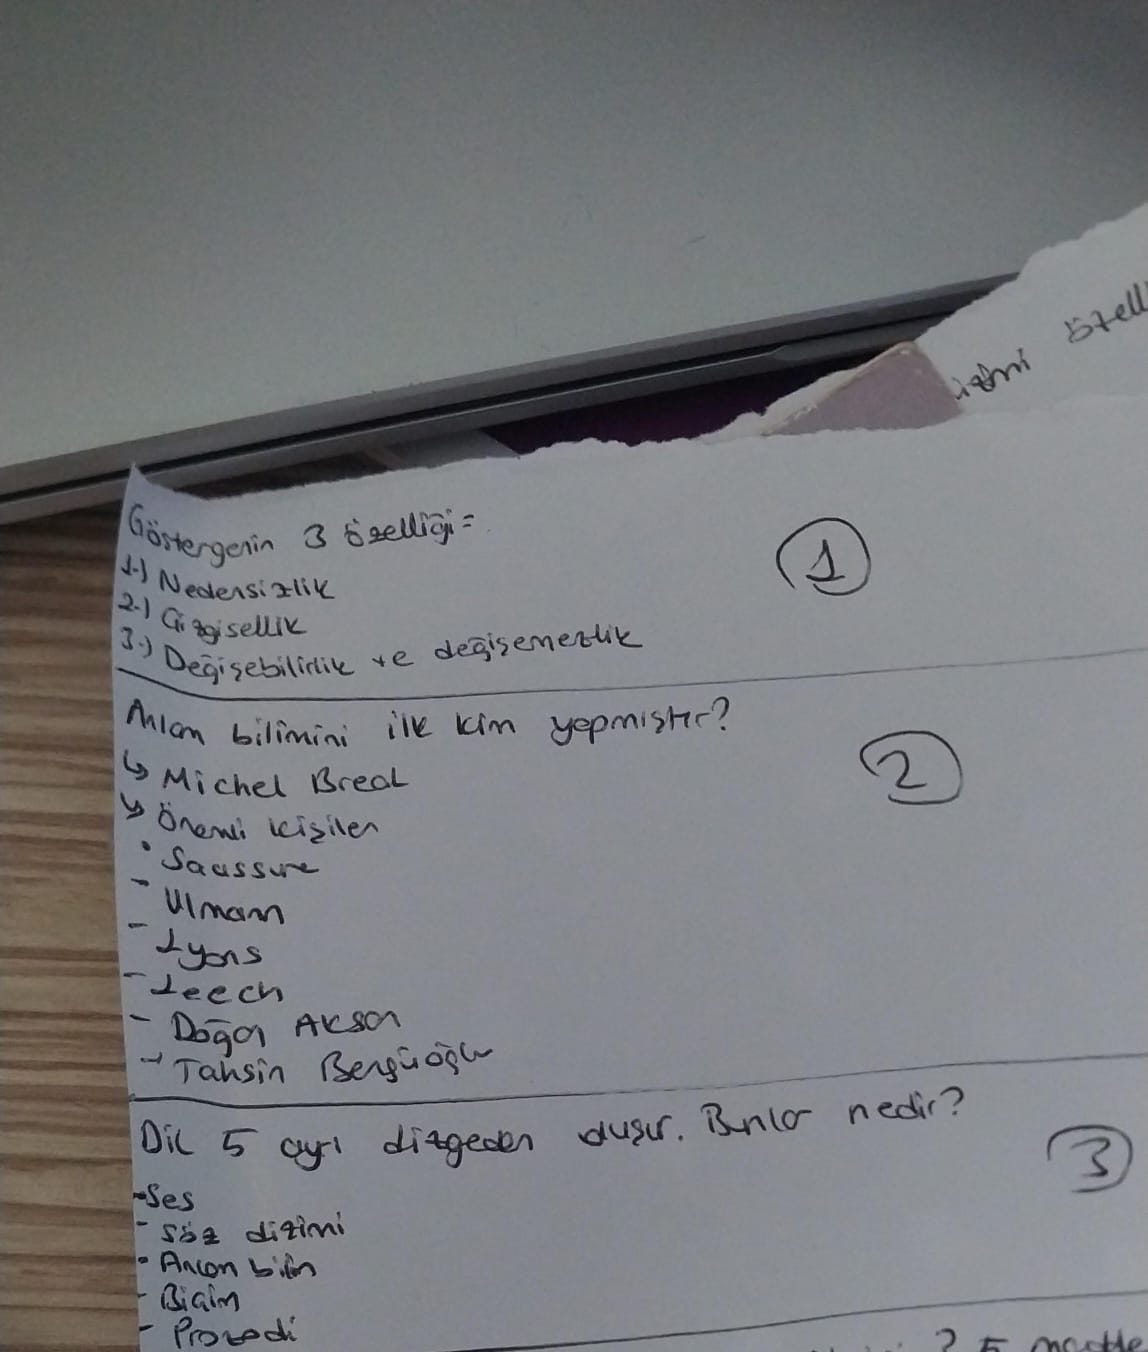 özell
Göstergenin 3 özelliği =
1-) Nedensizlik
2-) Çizgisellik
3-) Değişebilirlik ve değişemezlik
1
Anlam bilimini ilk kim yapmıştır?
↳ Michel Breal
↳ Önemli kişiler
• Saussure
- Ulmann
- Lyons
- Leech
- Doğan Aksan
- Tahsin
2
Dil 5 ayrı dizgeden oluşur. Bunlar nedir?
- Ses
- Söz dizimi
• Anlam bilim
- Biçim
- Prozodi
3
? 5 madde